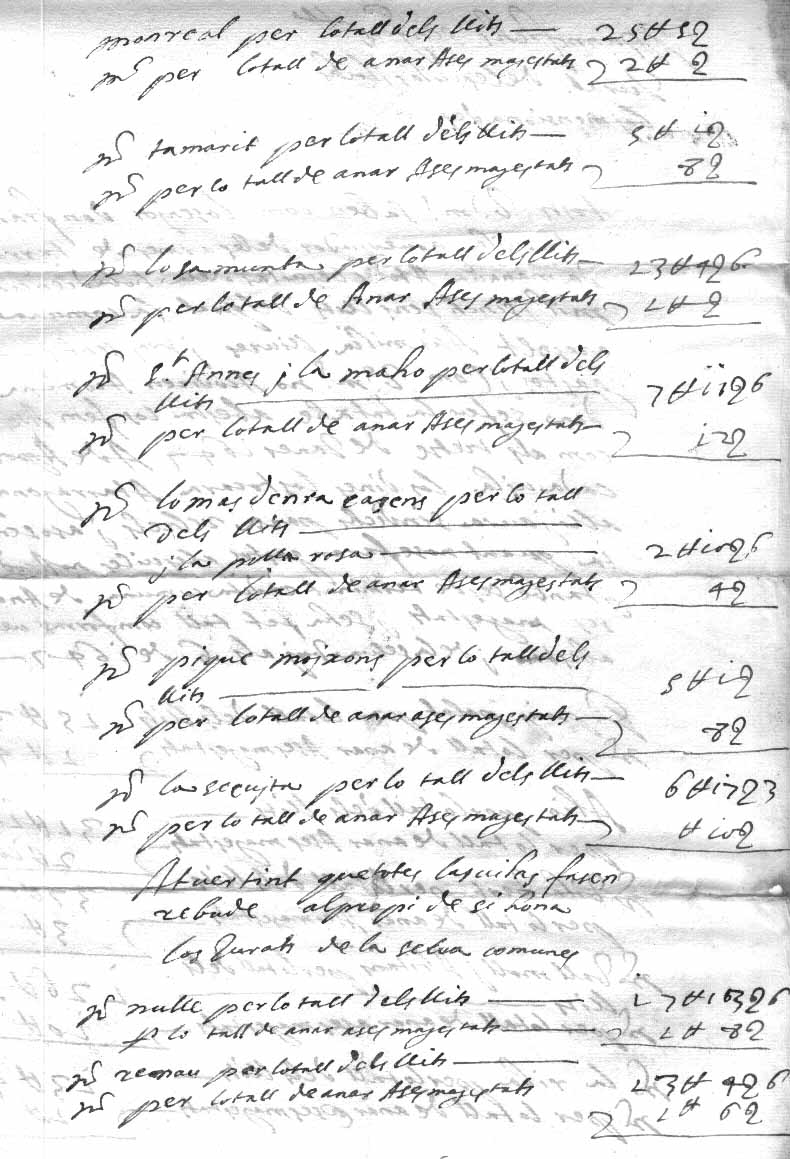 monreal per lo tall dels llits — 25 ₶ 5 ß
mes per lo tall de anar A ses majestats 2 ₶ ß
mes tamarit per lo tall dels llits — 5 ₶ i ß
mes per lo tall de anar A ses majestats 8 ß
mes losa munta per lo tall dels llits — 23 ₶ 4 ß 6
mes per lo tall de Anar A ses majestats 1 ₶ ß
mes St Annes j la maho per lo tall dels
llits — 7 ₶ ii ß 6
mes per lo tall de anar A ses majestats — i2 ß
mes lo mas den per lo tall
dels llits —
j la rosa — 2 ₶ i0 ß 6
mes per lo tall de anar A ses majestats 4 ß
mes pique mojxons per lo tall dels
llits — 5 ₶ i ß
mes per lo tall de anar a ses majestats — 8 ß
mes la secujta per lo tall dels llits — 6 ₶ i7 ß 3
mes per lo tall de anar A ses majestats — ₶ i0 ß
Atvertint que totes las vilas fasen
rebude al propi de si
los Jurats de la selva comunes
mes nulle per lo tall dels llits — i7 ₶ ß 6
per lo tall de anar a ses majestats — 1 ₶ 8 ß
mes renau per lo tall dels llits — 23 ₶ 4 ß 6
mes per lo tall de anar A ses majestats 1 ₶ 6 ß